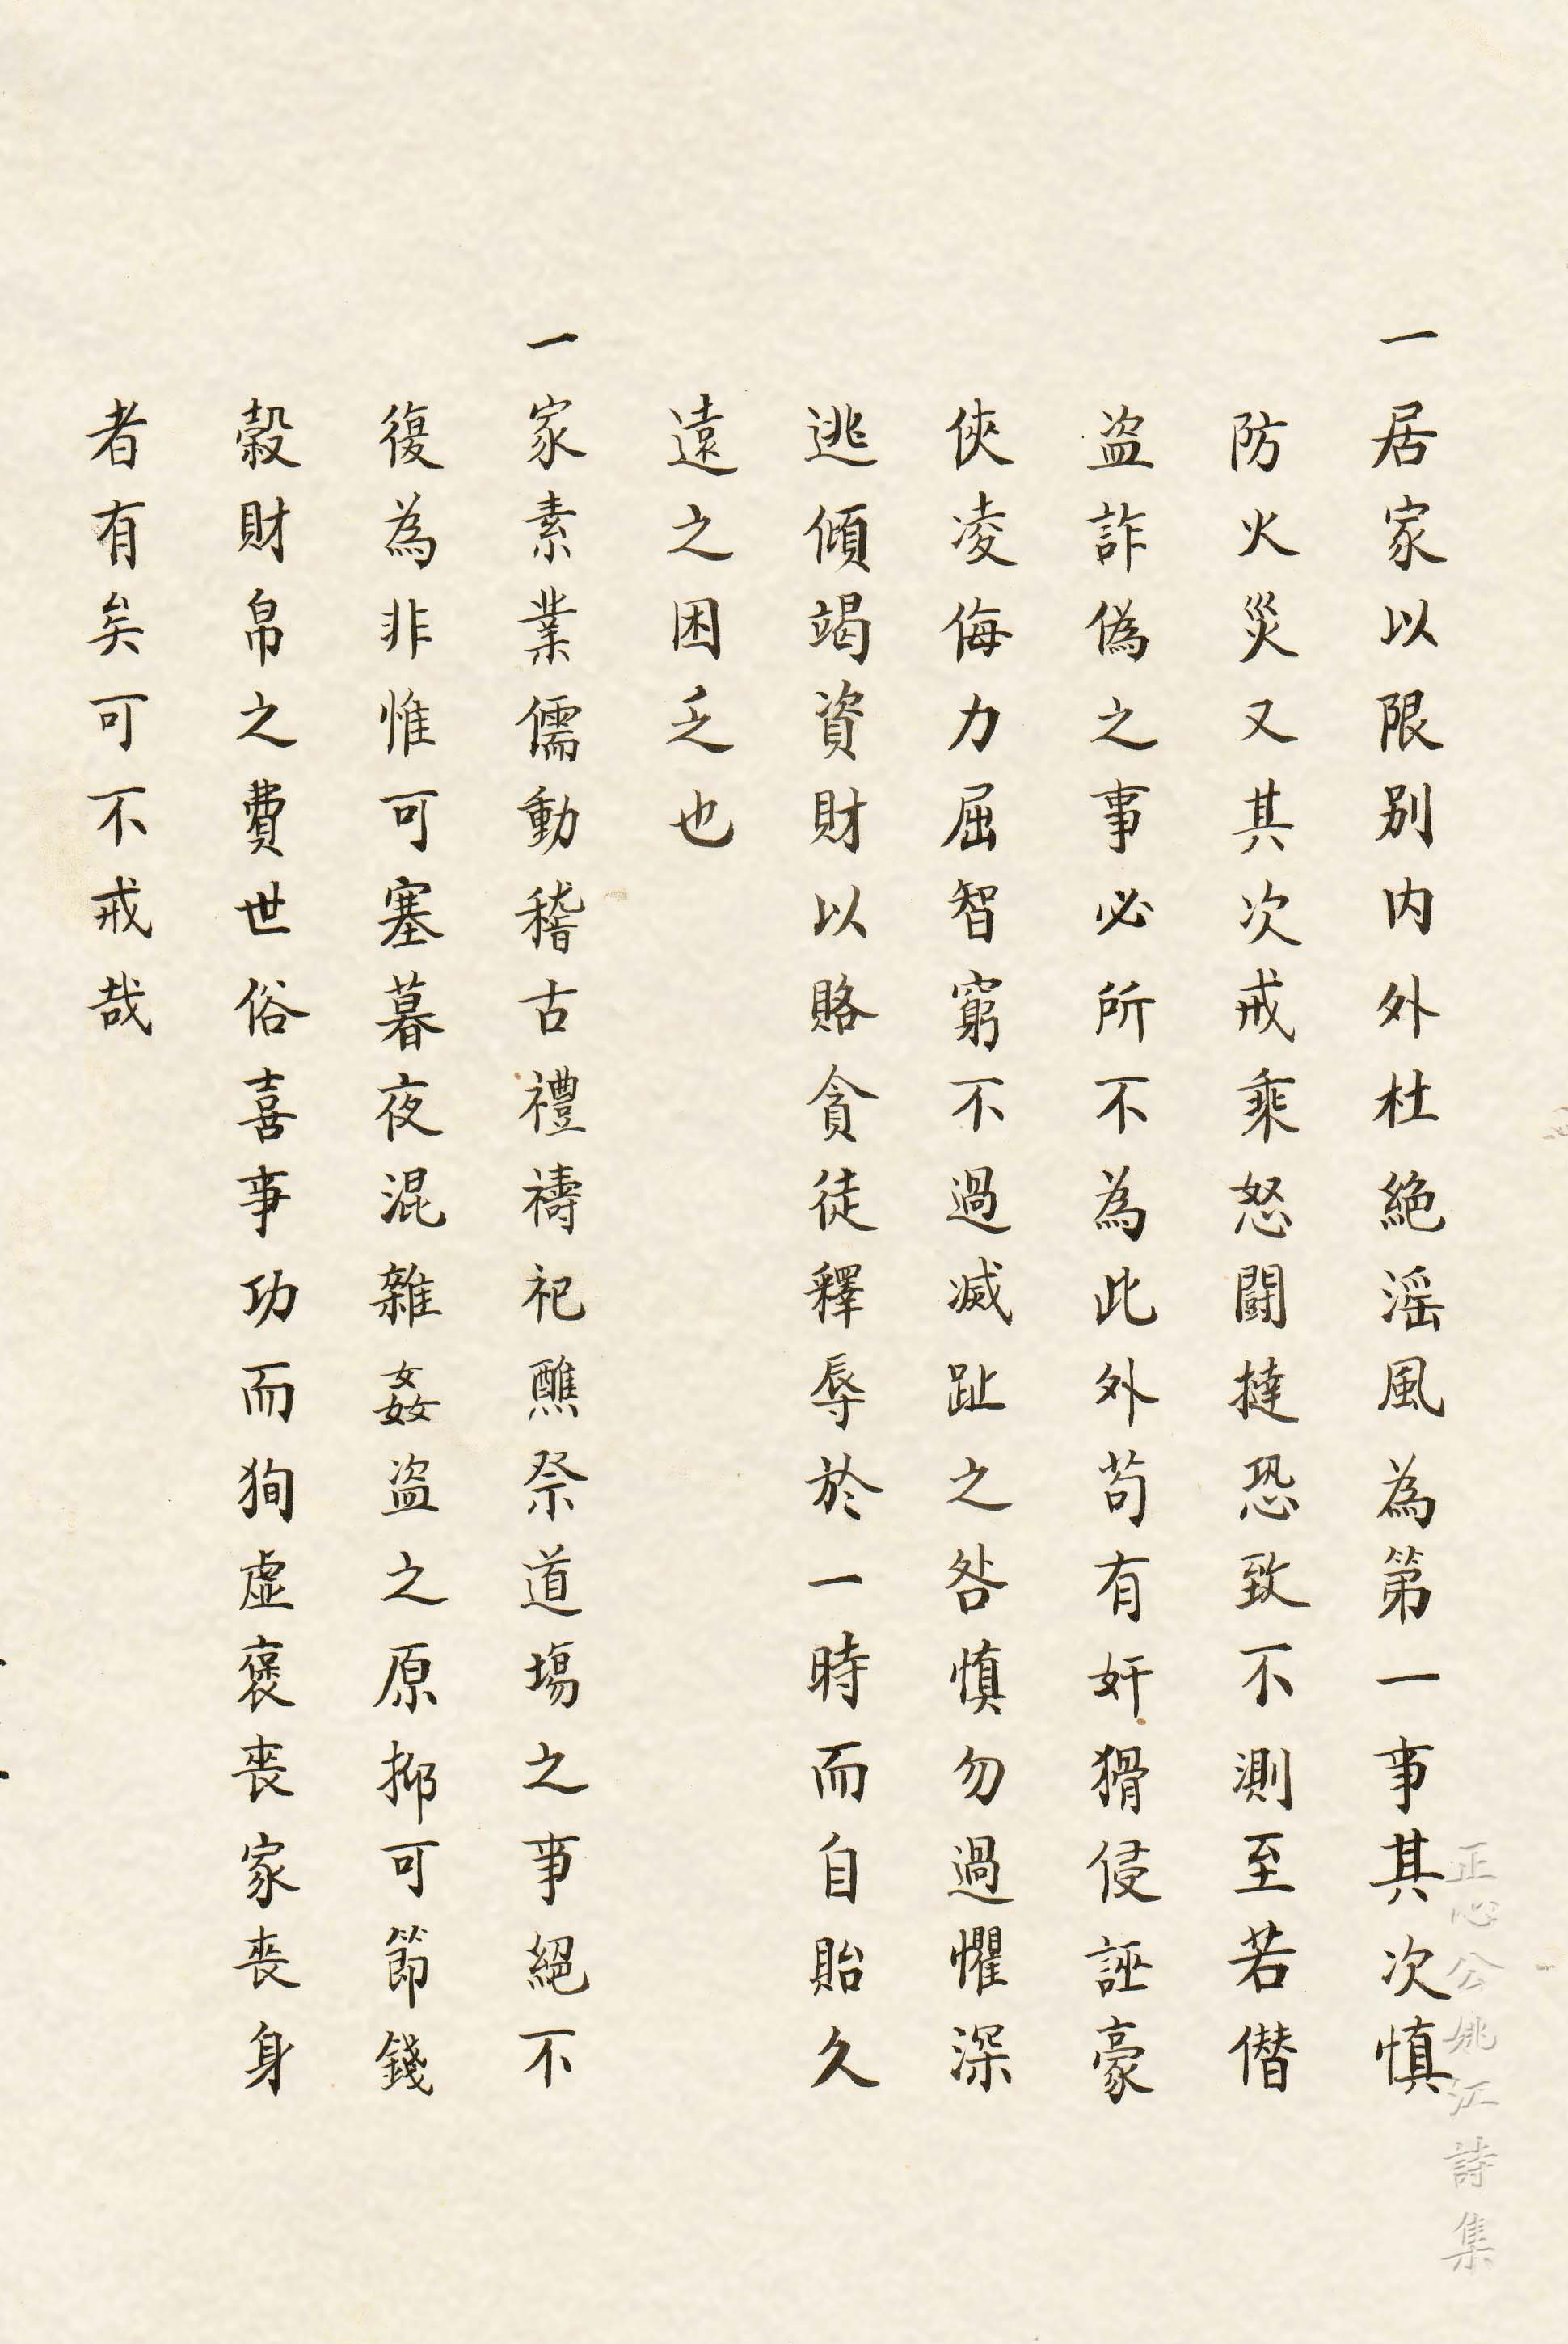 一居家以限別内外杜絶滛風為第一事其次慎
防火災又其次戒乘怒鬪撻恐致不測至若僭
盗詐偽之事必所不為此外苟有奸猾侵誣豪
俠凌侮力屈智窮不過滅趾之咎慎勿過懼深
逃傾竭資財以賂貪徒釋辱於一時而自貽久
遠之困乏也
一家素業儒動稽古禮禱祀醮祭道塲之事絕不
復為非惟可塞暮夜混雜姦盗之原抑可節錢
穀財帛之費世俗喜事功而狥虛褒丧家丧身
者有矣可不戒哉
正心公姚江詩集